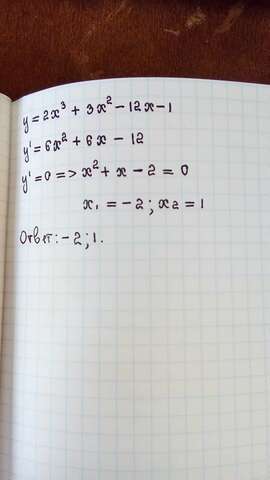 y = 2x³ + 3x² - 12x - 1
y' = 6x² + 6x - 12
y' = 0 => x² + x - 2 = 0
x₁ = -2 ; x₂ = 1
Ответ: -2 ; 1.